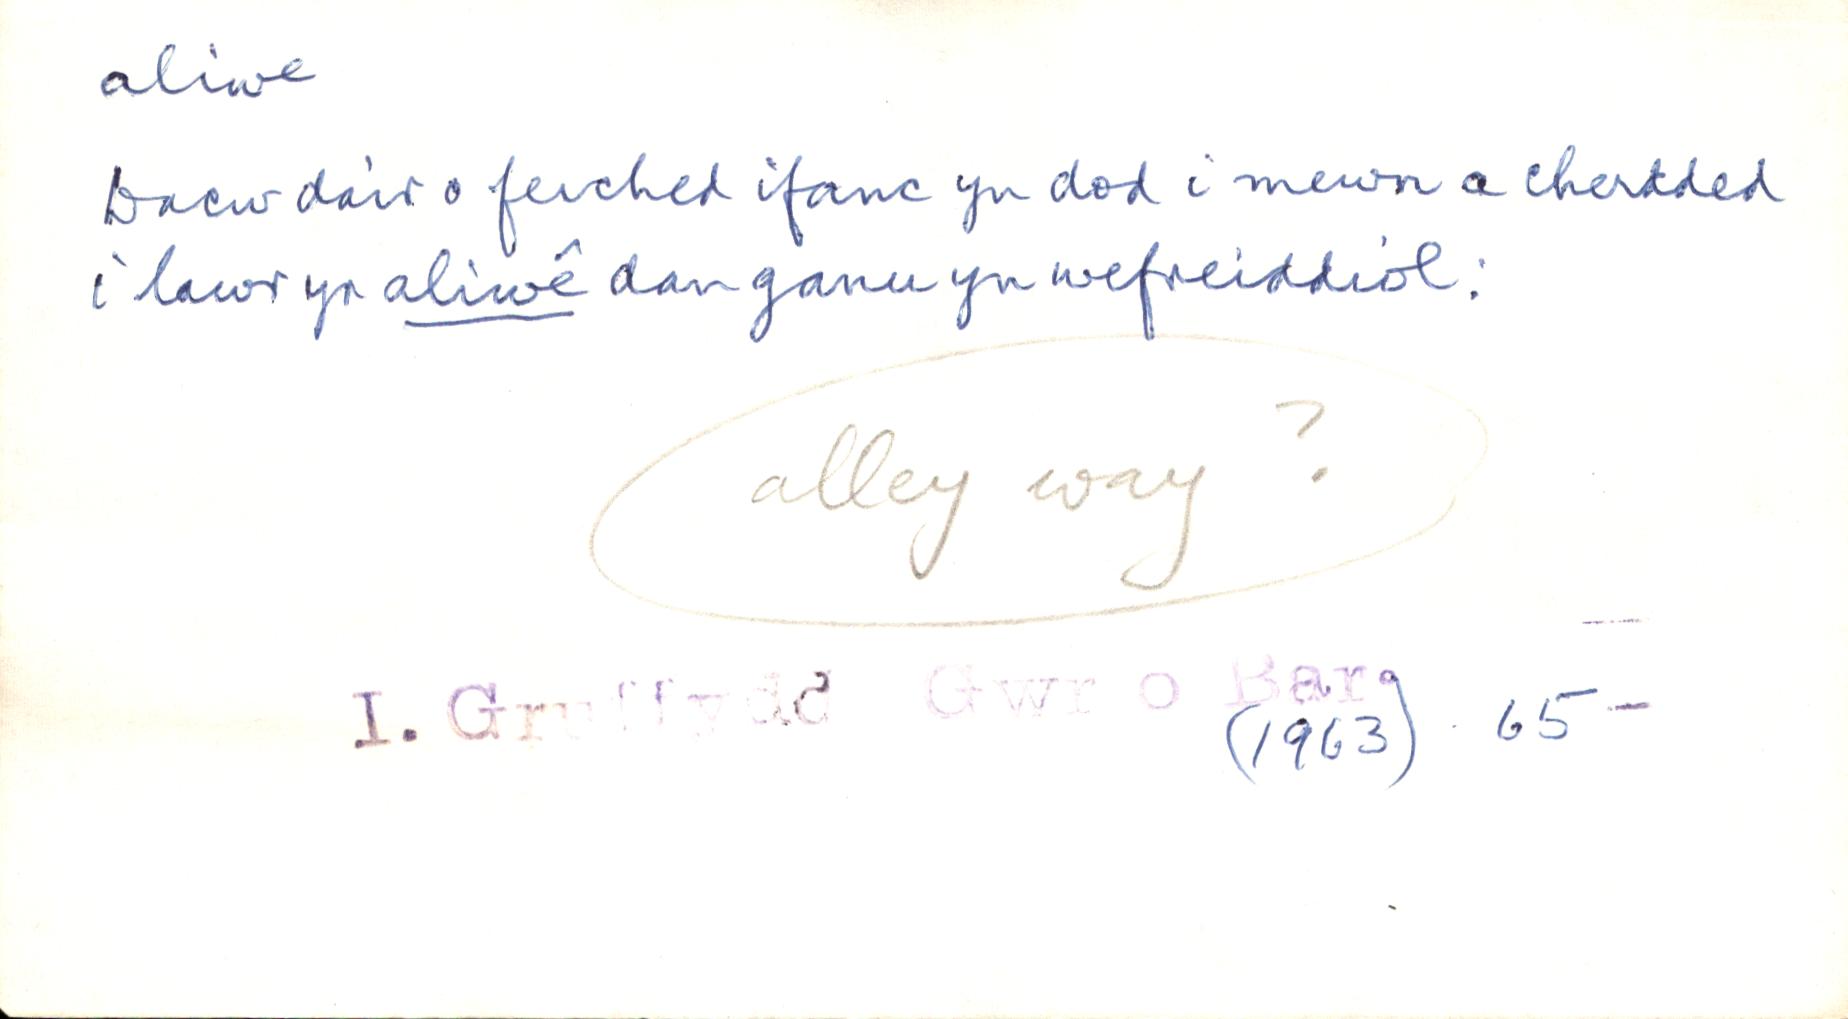 aliwe
Dacw dair o ferched ifanc yn dod i mewn a cherdded
i lawr yr aliwê dan ganu yn wefreiddiol:
alley way?
I. Gruffydd Gwr o Bar.
(1963) 65-